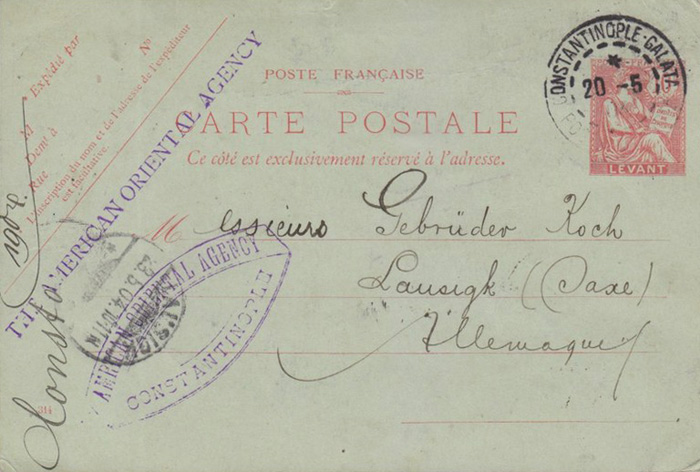 Expédié par
N°
M
Demt à
Rue
L'inscription du nom et de l'adresse de l'expéditeur
est facultative.
THE AMERICAN ORIENTAL AGENCY
POSTE FRANÇAISE
CARTE POSTALE
Ce côté est exclusivement réservé à l'adresse.
CONSTANTINOPLE-GALATA
20 -5
LEVANT
Messieurs Gebrüder Koch
Lausigk (Saxe)
Allemagne
ORIENTAL AGENCY
CONSTANTINOPLE
23.5.04
Consta
190
314